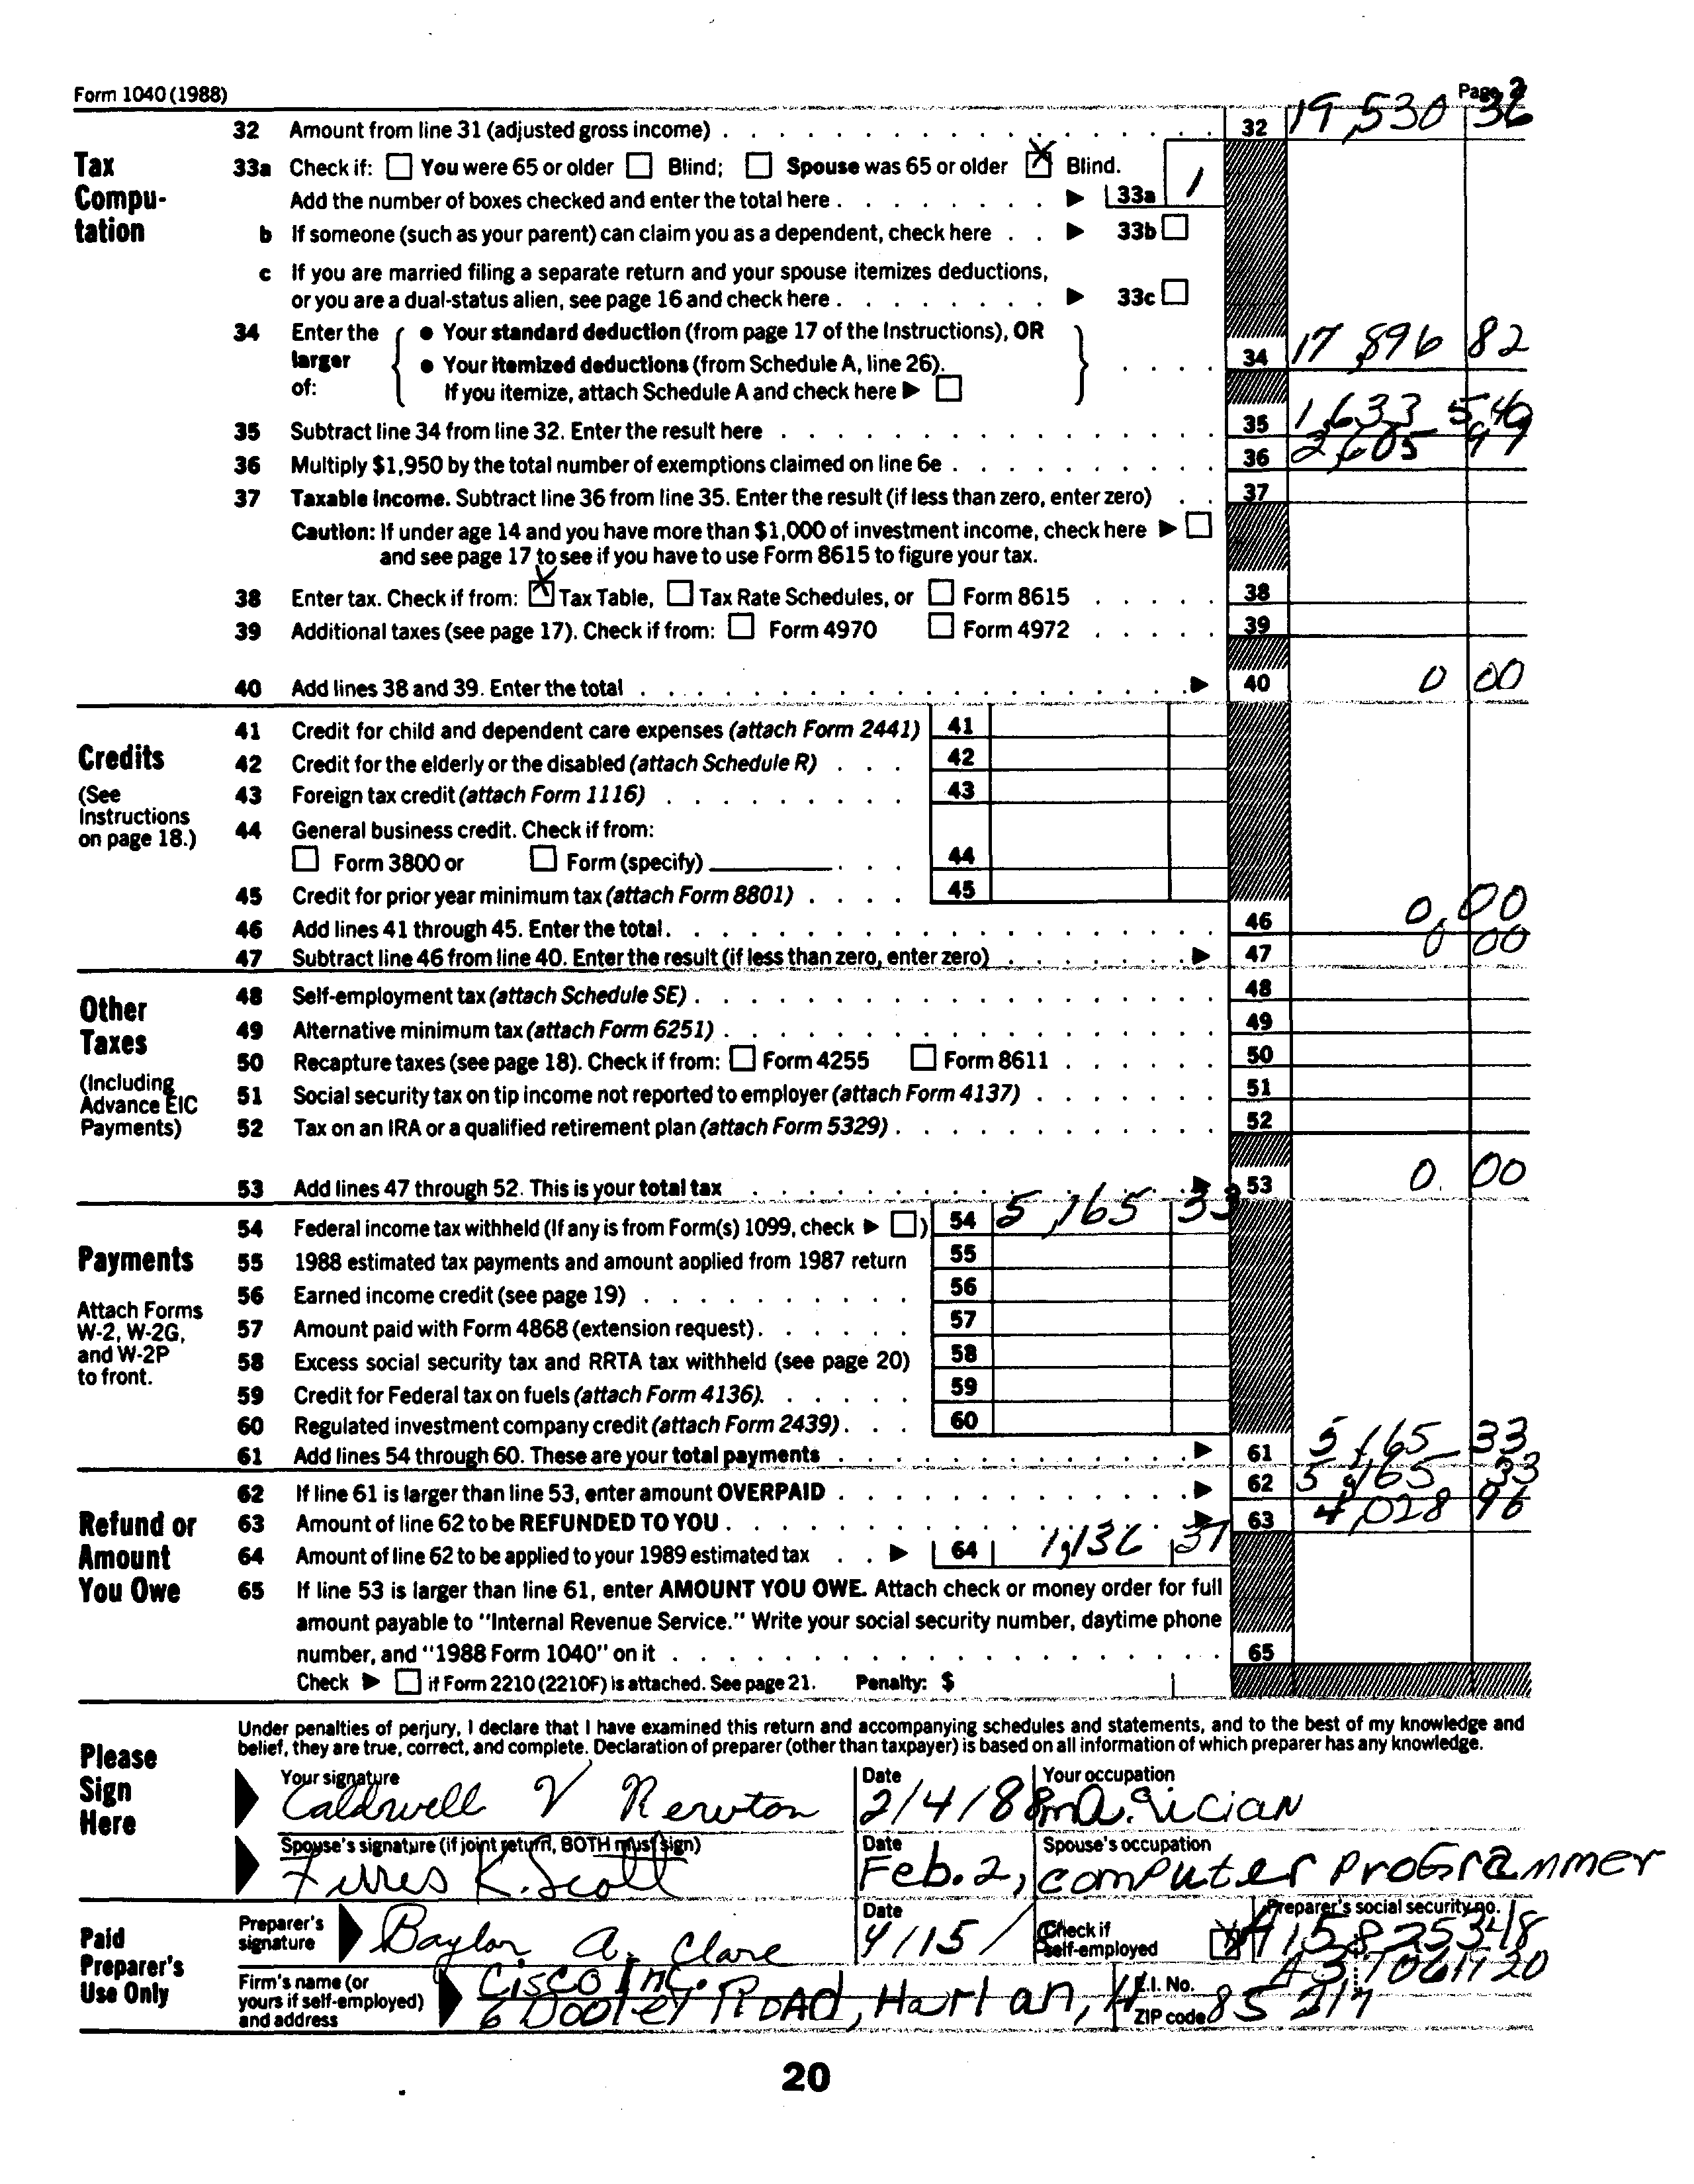 Form 1040 (1988)
Page 2
32 Amount from line 31 (adjusted gross income) 32 19,530 36
Tax Computation
33a Check if: You were 65 or older Blind; Spouse was 65 or older X Blind.
Add the number of boxes checked and enter the total here 33a 1
b If someone (such as your parent) can claim you as a dependent, check here 33b
c If you are married filing a separate return and your spouse itemizes deductions,
or you are a dual-status alien, see page 16 and check here 33c
34 Enter the larger of:
● Your standard deduction (from page 17 of the Instructions), OR
● Your itemized deductions (from Schedule A, line 26).
If you itemize, attach Schedule A and check here
34 17,896 82
35 Subtract line 34 from line 32. Enter the result here 35 1,633 54
36 Multiply $1,950 by the total number of exemptions claimed on line 6e 36 2,605 97
37 Taxable income. Subtract line 36 from line 35. Enter the result (if less than zero, enter zero) 37
Caution: If under age 14 and you have more than $1,000 of investment income, check here
and see page 17 to see if you have to use Form 8615 to figure your tax.
38 Enter tax. Check if from: X Tax Table, Tax Rate Schedules, or Form 8615 38
39 Additional taxes (see page 17). Check if from: Form 4970 Form 4972 39
40 Add lines 38 and 39. Enter the total 40 0 00
Credits
(See Instructions on page 18.)
41 Credit for child and dependent care expenses (attach Form 2441) 41
42 Credit for the elderly or the disabled (attach Schedule R) 42
43 Foreign tax credit (attach Form 1116) 43
44 General business credit. Check if from:
Form 3800 or Form (specify) 44
45 Credit for prior year minimum tax (attach Form 8801) 45
46 Add lines 41 through 45. Enter the total. 46 0.00
47 Subtract line 46 from line 40. Enter the result (if less than zero, enter zero) 47 0 00
Other Taxes
(Including Advance EIC Payments)
48 Self-employment tax (attach Schedule SE) 48
49 Alternative minimum tax (attach Form 6251) 49
50 Recapture taxes (see page 18). Check if from: Form 4255 Form 8611 50
51 Social security tax on tip income not reported to employer (attach Form 4137) 51
52 Tax on an IRA or a qualified retirement plan (attach Form 5329) 52
53 Add lines 47 through 52. This is your total tax 53 0. 00
Payments
Attach Forms W-2, W-2G, and W-2P to front.
54 Federal income tax withheld (If any is from Form(s) 1099, check ) 54 5,165 33
55 1988 estimated tax payments and amount applied from 1987 return 55
56 Earned income credit (see page 19) 56
57 Amount paid with Form 4868 (extension request) 57
58 Excess social security tax and RRTA tax withheld (see page 20) 58
59 Credit for Federal tax on fuels (attach Form 4136). 59
60 Regulated investment company credit (attach Form 2439) 60
61 Add lines 54 through 60. These are your total payments 61 5,165 33
Refund or Amount You Owe
62 If line 61 is larger than line 53, enter amount OVERPAID 62 5,165 33
63 Amount of line 62 to be REFUNDED TO YOU 63 4,028 96
64 Amount of line 62 to be applied to your 1989 estimated tax 64 1,136 37
65 If line 53 is larger than line 61, enter AMOUNT YOU OWE. Attach check or money order for full
amount payable to "Internal Revenue Service." Write your social security number, daytime phone
number, and "1988 Form 1040" on it 65
Check if Form 2210 (2210F) is attached. See page 21. Penalty: $
Please Sign Here
Under penalties of perjury, I declare that I have examined this return and accompanying schedules and statements, and to the best of my knowledge and
belief, they are true, correct, and complete. Declaration of preparer (other than taxpayer) is based on all information of which preparer has any knowledge.
Your signature Date Your occupation
Caldwell V Newton 2/4/88
Spouse's signature (if joint return, BOTH must sign) Date Spouse's occupation
K. Scott Feb. 2, computer programmer
Paid Preparer's Use Only
Preparer's signature Baylor A. Clare Date 4/15/ Check if self-employed X Preparer's social security no.
Firm's name (or yours if self-employed) and address
Cisco Inc. E.I. No.
6 Dooley Road, Harlan, ZIP code 85217
20